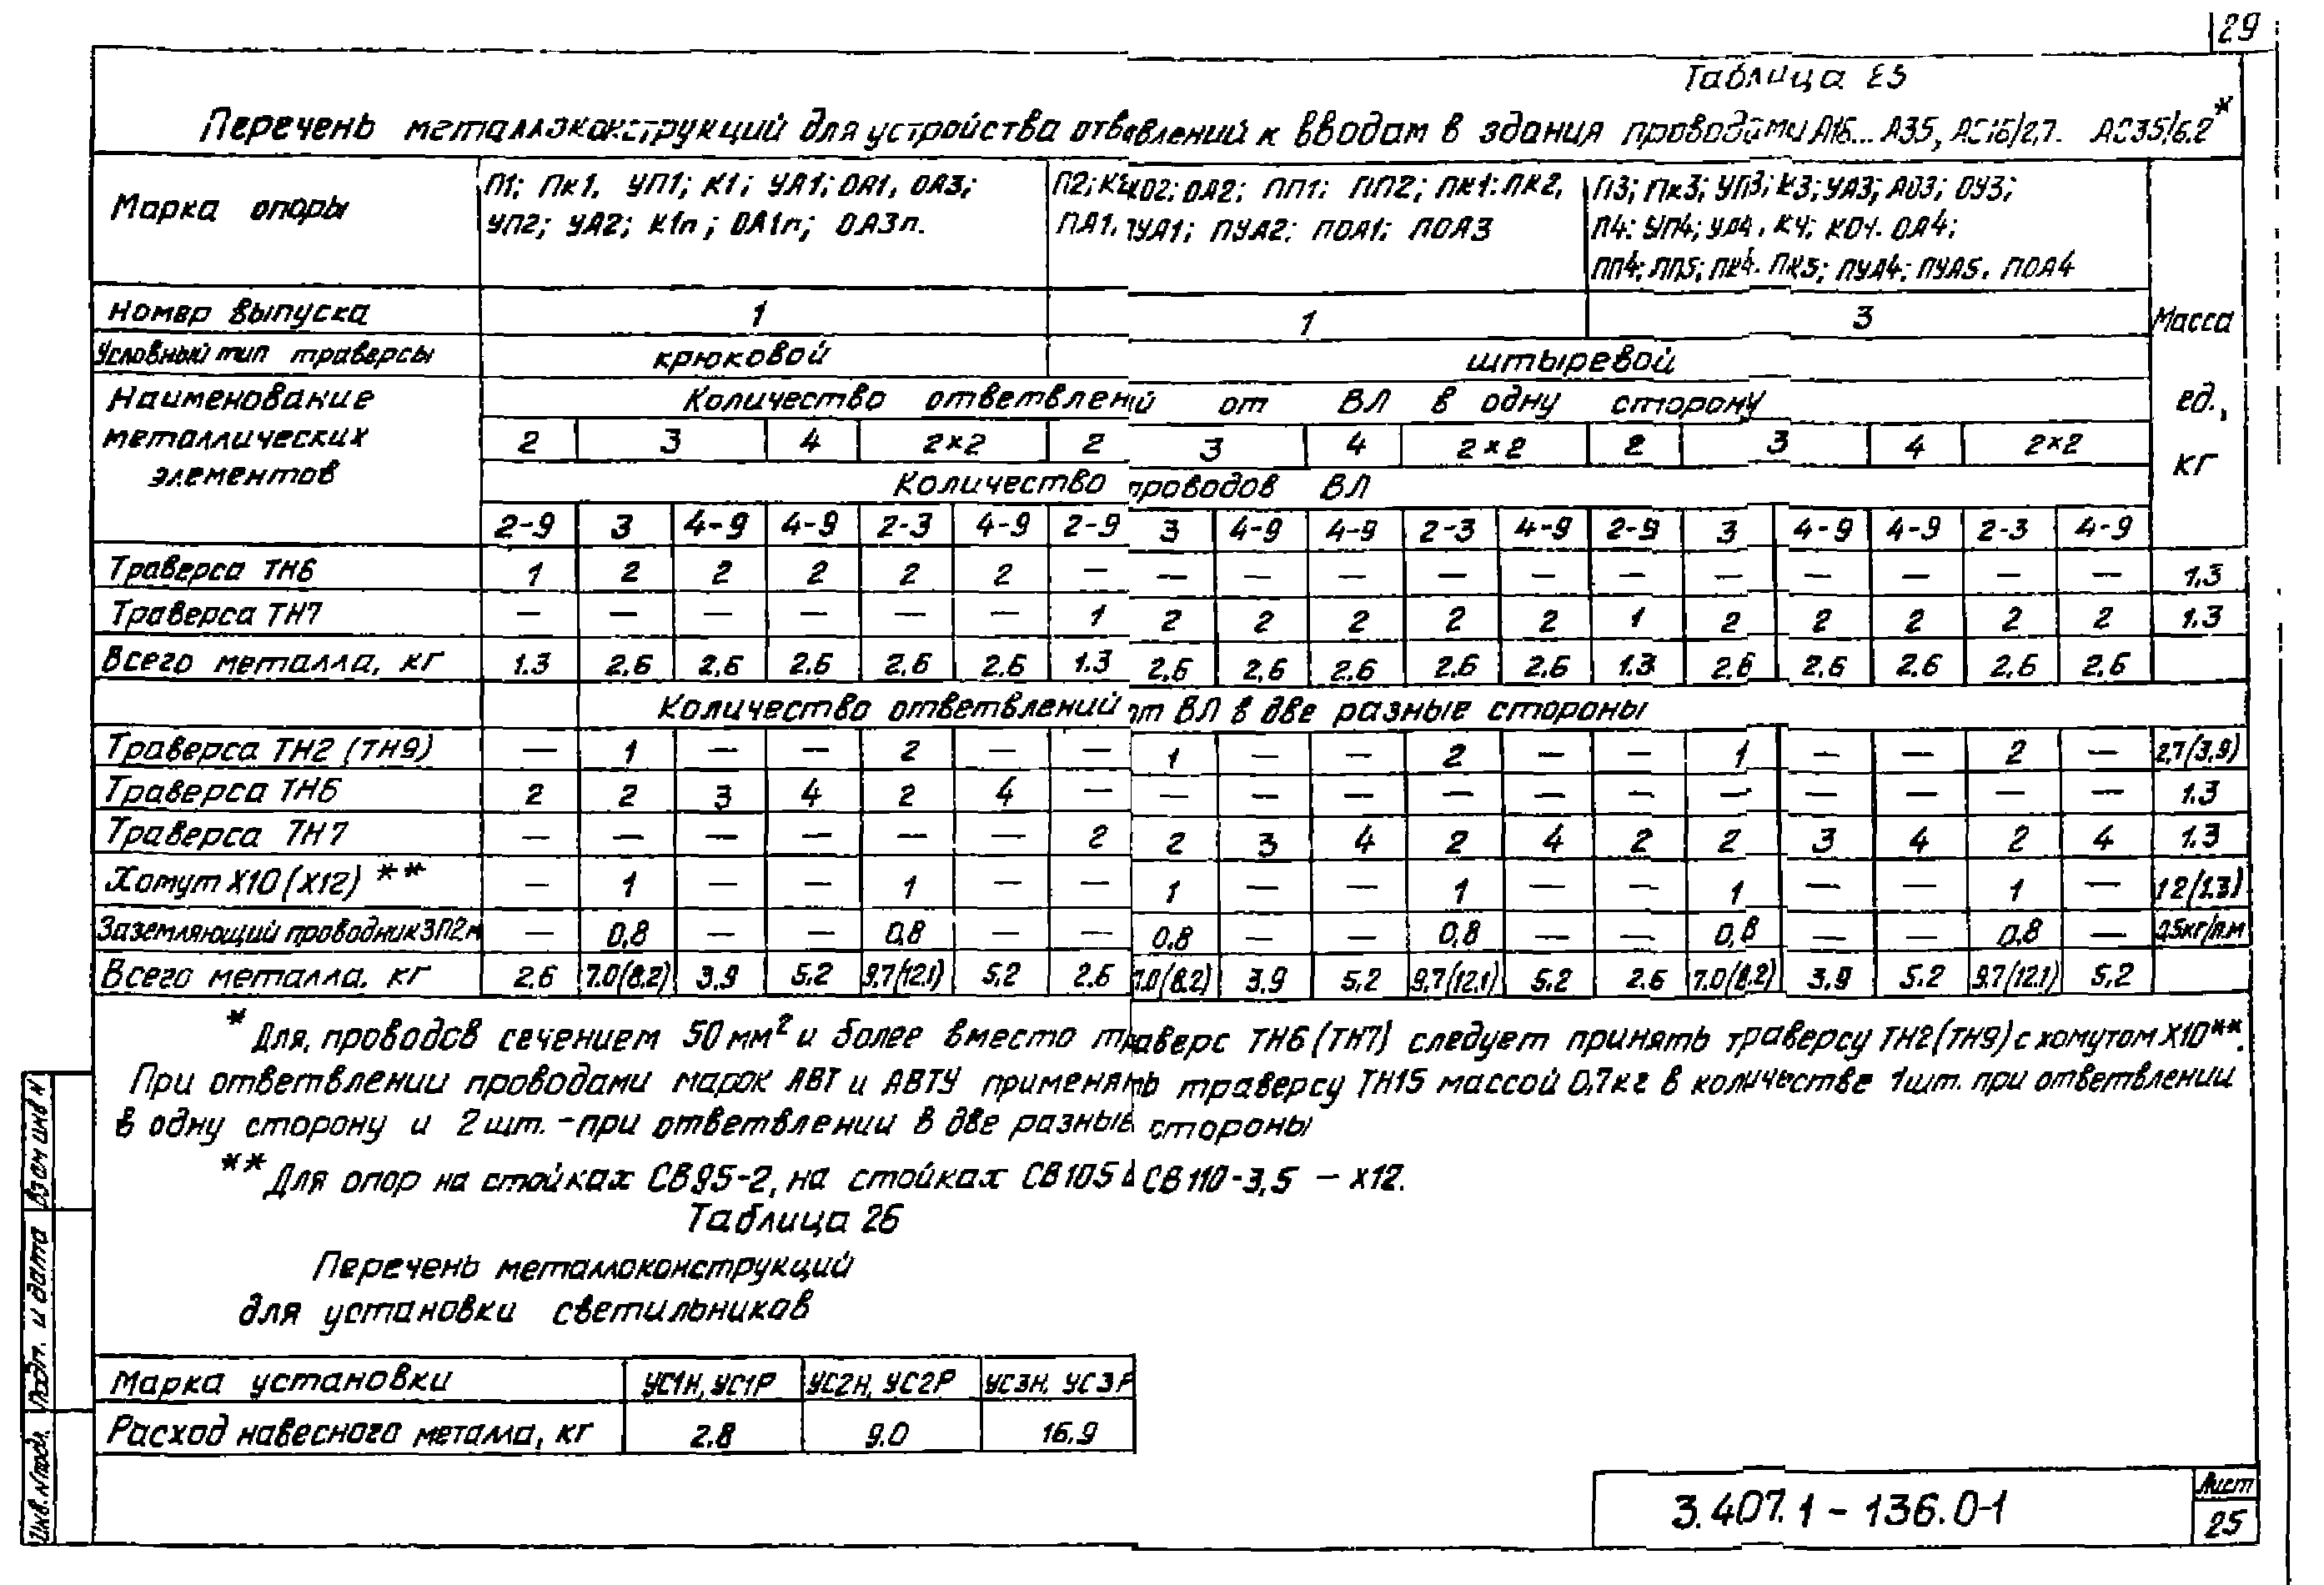 29
Таблица 25
Перечень металлоконструкций для устройства ответвлений к вводам в здания проводами А16... А35, АС16/2,7. АС35/6.2*
Марка опоры
П1; ПК1, УП1; К1; УА1; ОА1, ОА3;
УП2; УА2; К1п; ОА1п; ОА3п.
ПП1; ПП2; ПК1; ПК2,
ПА1, ПУА1; ПУА2; ПОА1; ПОА3
П3; ПК3; УП3; К3; УА3; АО3; ОУ3;
П4; УП4; УА4, К4; КО4. ОА4;
ПП4; ПП5; ПК4. ПК5; ПУА4; ПУА5, ПОА4
Масса ед., кг
Номер выпуска 1 1 3
Условный тип траверсы крюковой штыревой
Наименование металлических элементов
Количество ответвлений от ВЛ в одну сторону
2 3 4 2×2 2 3 4 2×2 2 3 4 2×2
Количество проводов ВЛ
2-9 3 4-9 4-9 2-3 4-9 2-9 3 4-9 4-9 2-3 4-9 2-9 3 4-9 4-9 2-3 4-9
Траверса ТН6 1 2 2 2 2 2 — — — — — — — — — — — — 1.3
Траверса ТН7 — — — — — — 1 2 2 2 2 2 1 2 2 2 2 2 1.3
Всего металла, кг 1.3 2.6 2.6 2.6 2.6 2.6 1.3 2.6 2.6 2.6 2.6 2.6 1.3 2.6 2.6 2.6 2.6 2.6
Количество ответвлений от ВЛ в две разные стороны
Траверса ТН2 (ТН9) — 1 — — 2 — — 1 — — 2 — — 1 — — 2 — 2,7(3,9)
Траверса ТН6 2 2 3 4 2 4 — — — — — — — — — — — — 1.3
Траверса ТН7 — — — — — — 2 2 3 4 2 4 2 2 3 4 2 4 1.3
Хомут Х10 (Х12) ** — 1 — — 1 — — 1 — — 1 — — 1 — — 1 — 1.2(1.3)
Заземляющий проводник ЗП2м — 0,8 — — 0,8 — — 0.8 — — 0.8 — — 0,8 — — 0.8 — 0,5кг/п.м
Всего металла, кг 2.6 7.0(8.2) 3.9 5.2 9.7(12.1) 5.2 2.6 7.0(8.2) 3.9 5.2 9.7(12.1) 5.2 2.6 7.0(8.2) 3.9 5.2 9.7(12.1) 5.2
* Для проводов сечением 50 мм² и более вместо траверс ТН6 (ТН7) следует принять траверсу ТН2(ТН9) с хомутом Х10**.
При ответвлении проводами марок АВТ и АВТУ применять траверсу ТН15 массой 0,7кг в количестве 1шт. при ответвлении
в одну сторону и 2шт. - при ответвлении в две разные стороны
** Для опор на стойках СВ95-2, на стойках СВ105 и СВ110-3,5 — Х12.
Таблица 26
Перечень металлоконструкций
для установки светильников
Марка установки УС1Н, УС1Р УС2Н, УС2Р УС3Н, УС3Р
Расход навесного металла, кг 2.8 9.0 16.9
Взам инв N
Подп. и дата
Инв. N подл.
3.407.1 - 136.0-1
Лист
25